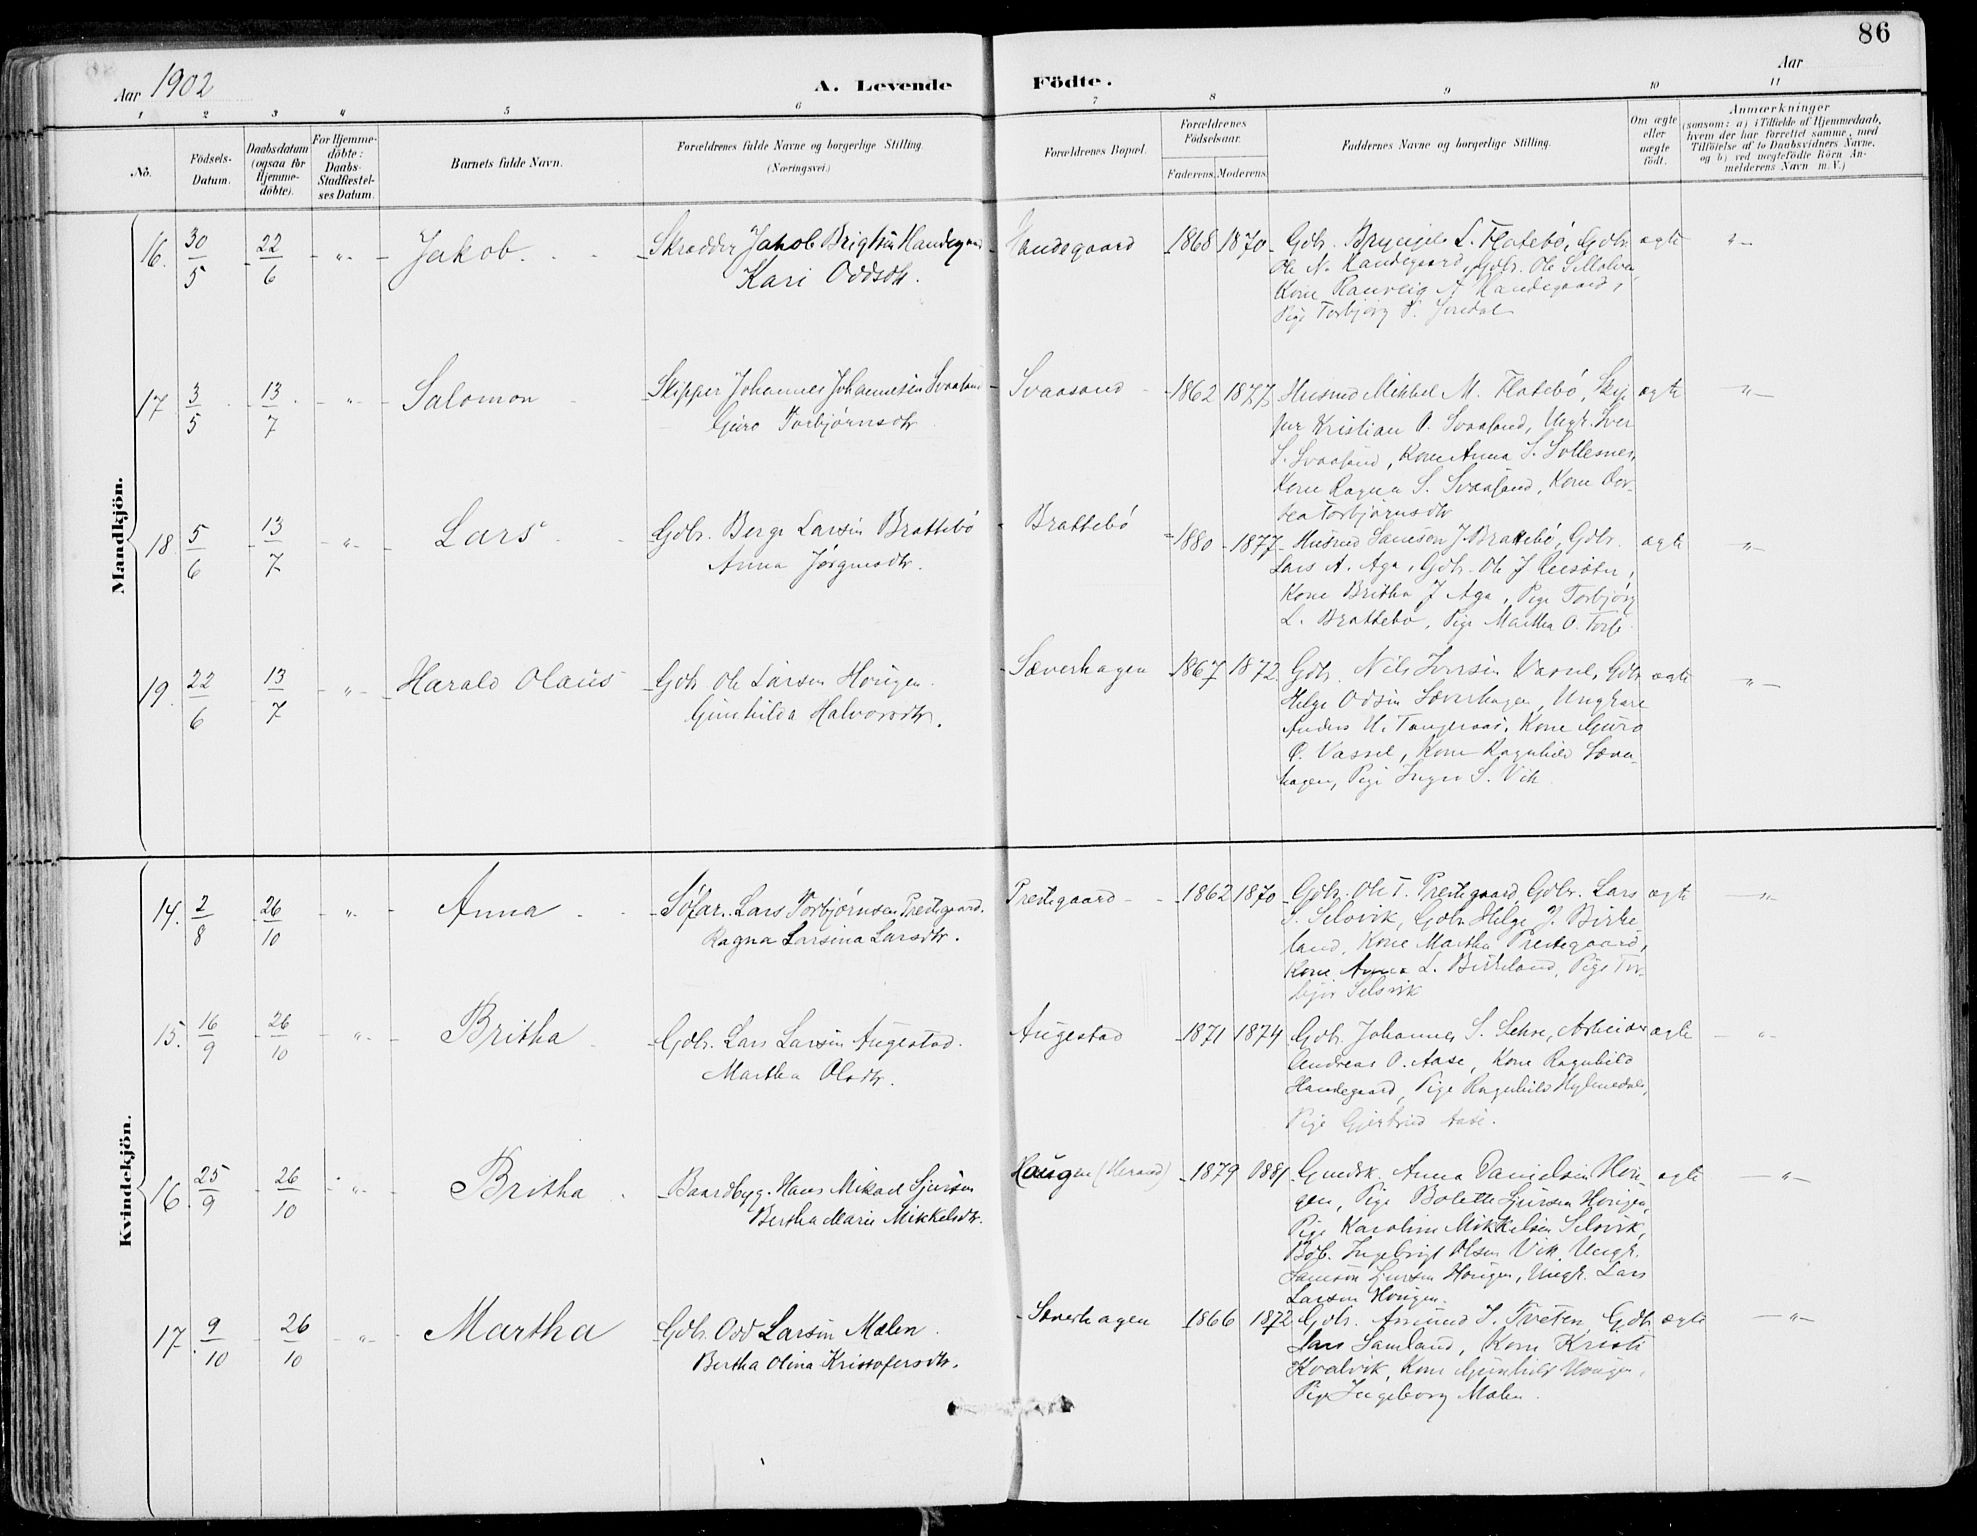 86
Aar 1902
A. Levende Födte.
Aar
1 2 3 4 5 6 7 8 9 10 11
No.
Födsels-Datum.
Daabsdatum (ogsaa for Hjemme-döbte).
For Hjemme-döbte: Daabs-Stadfæstel-ses Datum.
Barnets fulde Navn.
Forældrenes fulde Navne og borgerlige Stilling.
(Næringsvei.)
Forældrenes Bopæl.
Forældrenes Födselsaar.
Faderens. Moderens.
Faddernes Navne og borgerlige Stilling.
Om ægte eller uægte født.
Anmærkninger
(saasom: a) i Tilfælde af Hjemmedaab,
hvem der har forrettet samme, med
Tilföielse af to Daabsvidners Navne,
og b) ved uegtefödte Börn An-
melderens Navn m.V.)
Mandkjön.
16. 30/5 22/6 -"- Jakob. Skrædder Jakob Brigtsen Handegaard Handegaard 1868 1870 Gdbr. Bryngel L. Flatebø, Gdbr. ægte "-
Kari Oddsdtr.
Ole N. Handegaard, Gdbr. Ole
Kone Ranveig Handegaard,
Pige Torbjørg Jondal
17 3/5 13/7 -"- Salomon Skipper Johannes Johannesen Svaasand Svaasand 1862 1877 Husmd Mikkel M. Flatebø, Skip- ægte -"-
Guro Torbjørnsdtr
per Kristian O. Svaasand, Ungk. Iver
S. Svaasand, Kone Anna S. Sollesnes,
Kone Ragna S. Svaasand, Kone Dor-
tea Torbjørnsdtr
18 5/6 13/7 -"- Lars Gdbr. Berge Larsen Brattebø Brattebø 1880 1877 Husmd Samson J Brattebø, Gdbr. ægte -"-
Anna Jørgensdtr.
Lars A. Aga, Gdbr. Ole J
Kone Britha J Aga, Pige Torbjørg
L. Brattebø, Pige Martha O.
19. 22/6 13/7 -"- Harald Olaus Gdbr Ole Larsen Hougen. Sæverhagen 1867 1872 Gdbr. Nils Iversen Gdbr ægte -"-
Gunhilda Halvorsdtr.
Helge Odsen Sæverhagen, Ungkare
Anders Tangeraas, Kone Guro
Kone Ragnhild Sæver-
hagen, Pige Inger S. Vik
Kvindekjön.
14. 2/8 26/10 -"- Anna Lars Torbjørnsen Prestegaard. Prestegaard 1862 1870 Gdbr. Ole T. Prestegaard, Gdbr. Lars ægte -"-
Ragna Larsina Larsdtr.
S. Selsvik, Gdbr Helge Birke
land, Kone Martha Prestegaard,
Kone Anna L. Birkeland, Pige Tor-
bjør Selsvik
15. 16/9 26/10 -"- Britha Gdbr. Lars Larsen Augestad. Augestad 1871 1874 Gdbr. Johannes S. Sehre, Arbeider ægte -"-
Martha Olsdtr.
Andreas O. Aase, Kone Ragnhild
Handegaard, Pige Ragnhild
Pige Gjertrud Aase.
16. 25/9 26/10 -"- Britha Baardbyg. Hans Mikael Sjursen Haugen (Herand) 1879 1881 Anna Danielsen Hou- ægte -"-
Bertha Marie Mikkelsdtr.
gen, Pige Bolette Sjursen Hougen,
Pige Karoline Mikkelsen Selsvik,
Ingebrigt Olsen Vik, Ungk.
Samson Sjursen Hougen, Ungk. Lars
Larsen Hougen.
17. 9/10 26/10 -"- Martha Gdbr. Odd Larsen Mælen. Sæverhagen 1866 1872 Gdbr. Amund Tveten Gdbr ægte -"-
Bertha Olina Kristofersdtr.
Lars Samland, Kone Kristi
Kvalvik, Kone Gunhild Hougen,
Pige Ingeborg Mælen.